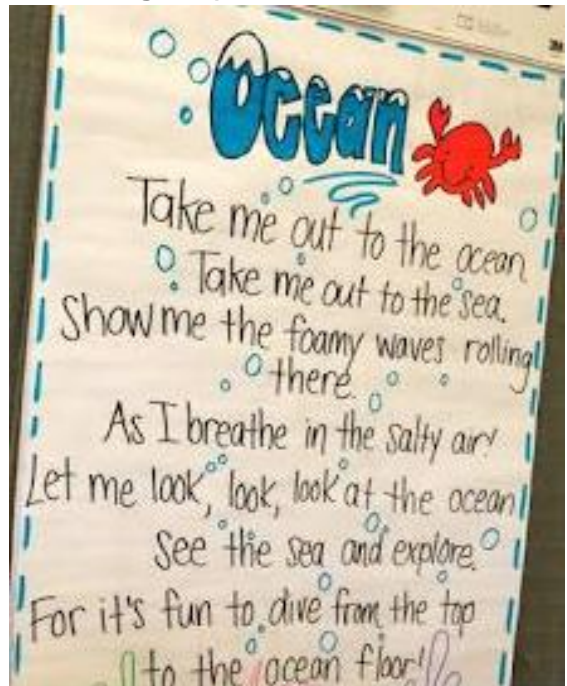 Ocean
Take me out to the ocean
Take me out to the sea.
Show me the foamy waves rolling
there.
As I breathe in the salty air!
Let me look, look, look at the ocean
See the sea and explore.
For it's fun to dive from the top
to the ocean floor!
3M